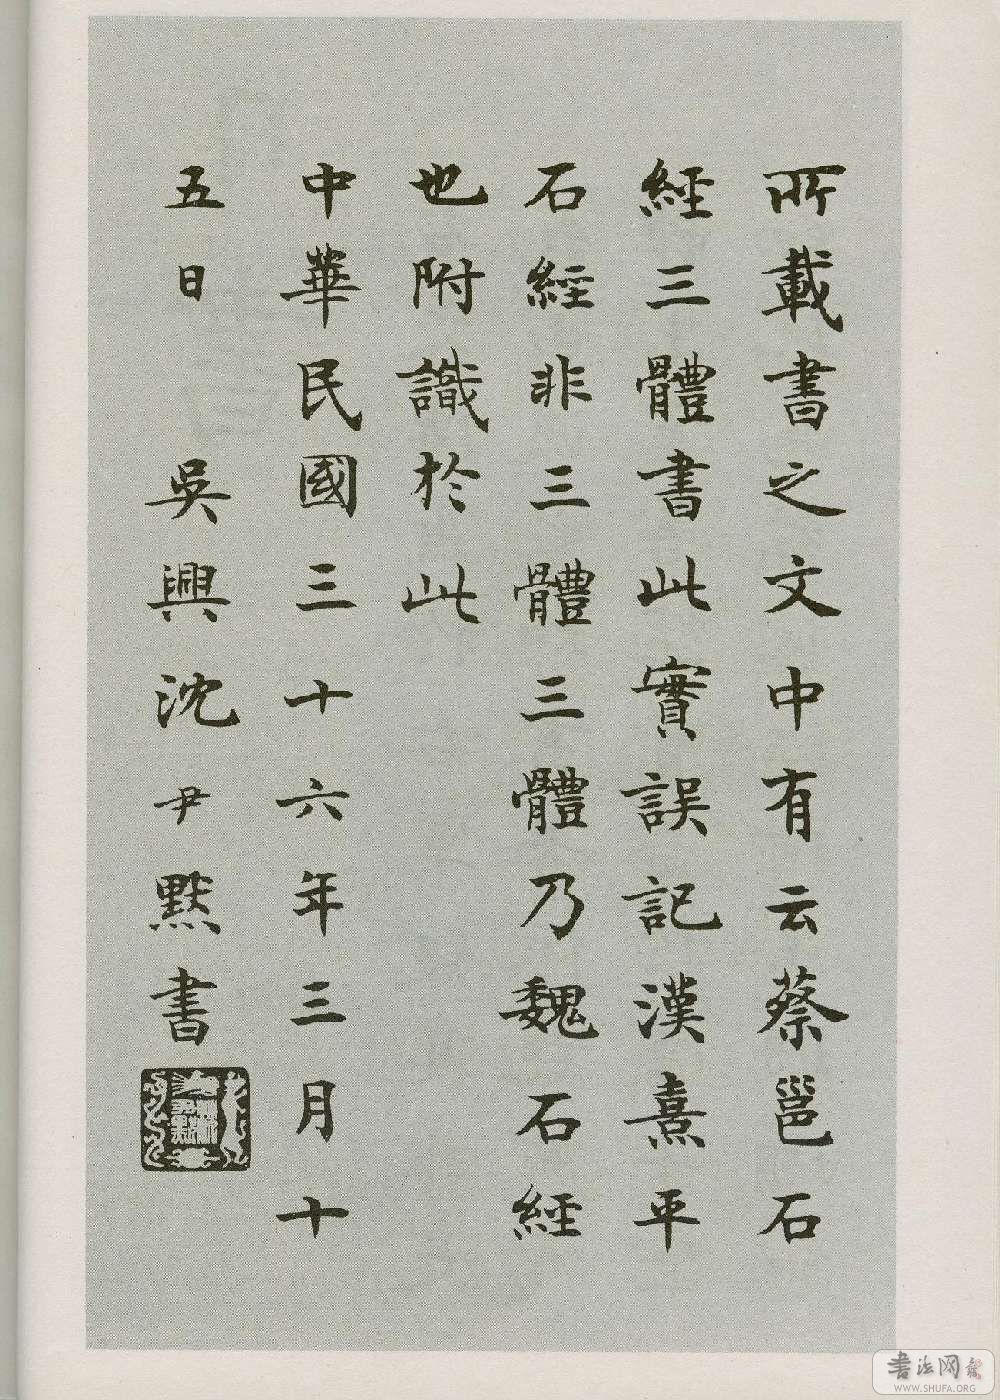 所載書之文中有云蔡邕石
經三體書此實誤記漢熹平
石經非三體三體乃魏石經
也附識於此
中華民國三十六年三月十
五日 吳興沈尹默書
書法网
WWW.SHUFA.ORG